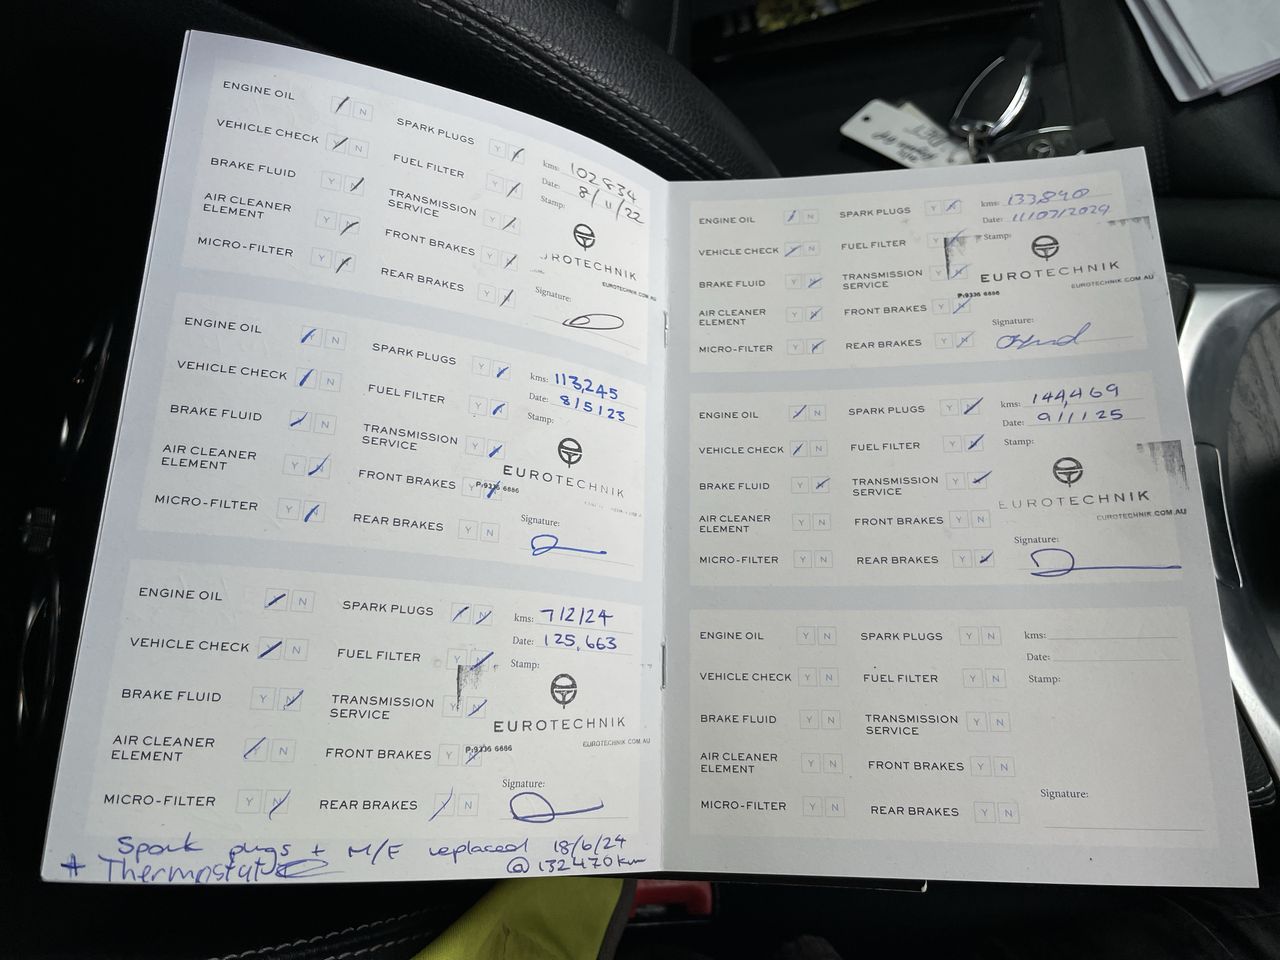 ENGINE OIL Y N SPARK PLUGS Y N kms: 102834
VEHICLE CHECK Y N FUEL FILTER Y N Date: 8/11/22
BRAKE FLUID Y N TRANSMISSION SERVICE Y N Stamp:
AIR CLEANER ELEMENT Y N FRONT BRAKES Y N EUROTECHNIK
EUROTECHNIK.COM.AU
MICRO-FILTER Y N REAR BRAKES Y N Signature:
ENGINE OIL Y N SPARK PLUGS Y N kms: 113,245
VEHICLE CHECK Y N FUEL FILTER Y N Date: 8/5/23
BRAKE FLUID Y N TRANSMISSION SERVICE Y N Stamp:
AIR CLEANER ELEMENT Y N FRONT BRAKES Y N EUROTECHNIK
P:9336 6886
MICRO-FILTER Y N REAR BRAKES Y N Signature:
ENGINE OIL Y N SPARK PLUGS Y N kms: 7/2/24
VEHICLE CHECK Y N FUEL FILTER Y N Date: 125,663
BRAKE FLUID Y N TRANSMISSION SERVICE Y N Stamp:
EUROTECHNIK
AIR CLEANER ELEMENT Y N FRONT BRAKES Y N P:9336 6886 EUROTECHNIK.COM.AU
MICRO-FILTER Y N REAR BRAKES Y N Signature:
Spark plugs + M/F replaced 18/6/24
+ Thermostat @ 132470km
ENGINE OIL Y N SPARK PLUGS Y N kms: 133,890
Date: 11/07/2024
VEHICLE CHECK Y N FUEL FILTER Y N Stamp:
BRAKE FLUID Y N TRANSMISSION SERVICE Y N EUROTECHNIK
P:9336 6886 EUROTECHNIK.COM.AU
AIR CLEANER ELEMENT Y N FRONT BRAKES Y N
MICRO-FILTER Y N REAR BRAKES Y N Signature:
ENGINE OIL Y N SPARK PLUGS Y N kms: 144,469
Date: 9/1/25
VEHICLE CHECK Y N FUEL FILTER Y N Stamp:
BRAKE FLUID Y N TRANSMISSION SERVICE Y N EUROTECHNIK
AIR CLEANER ELEMENT Y N FRONT BRAKES Y N EUROTECHNIK.COM.AU
MICRO-FILTER Y N REAR BRAKES Y N Signature:
ENGINE OIL Y N SPARK PLUGS Y N kms:
Date:
VEHICLE CHECK Y N FUEL FILTER Y N Stamp:
BRAKE FLUID Y N TRANSMISSION SERVICE Y N
AIR CLEANER ELEMENT Y N FRONT BRAKES Y N
MICRO-FILTER Y N REAR BRAKES Y N Signature: